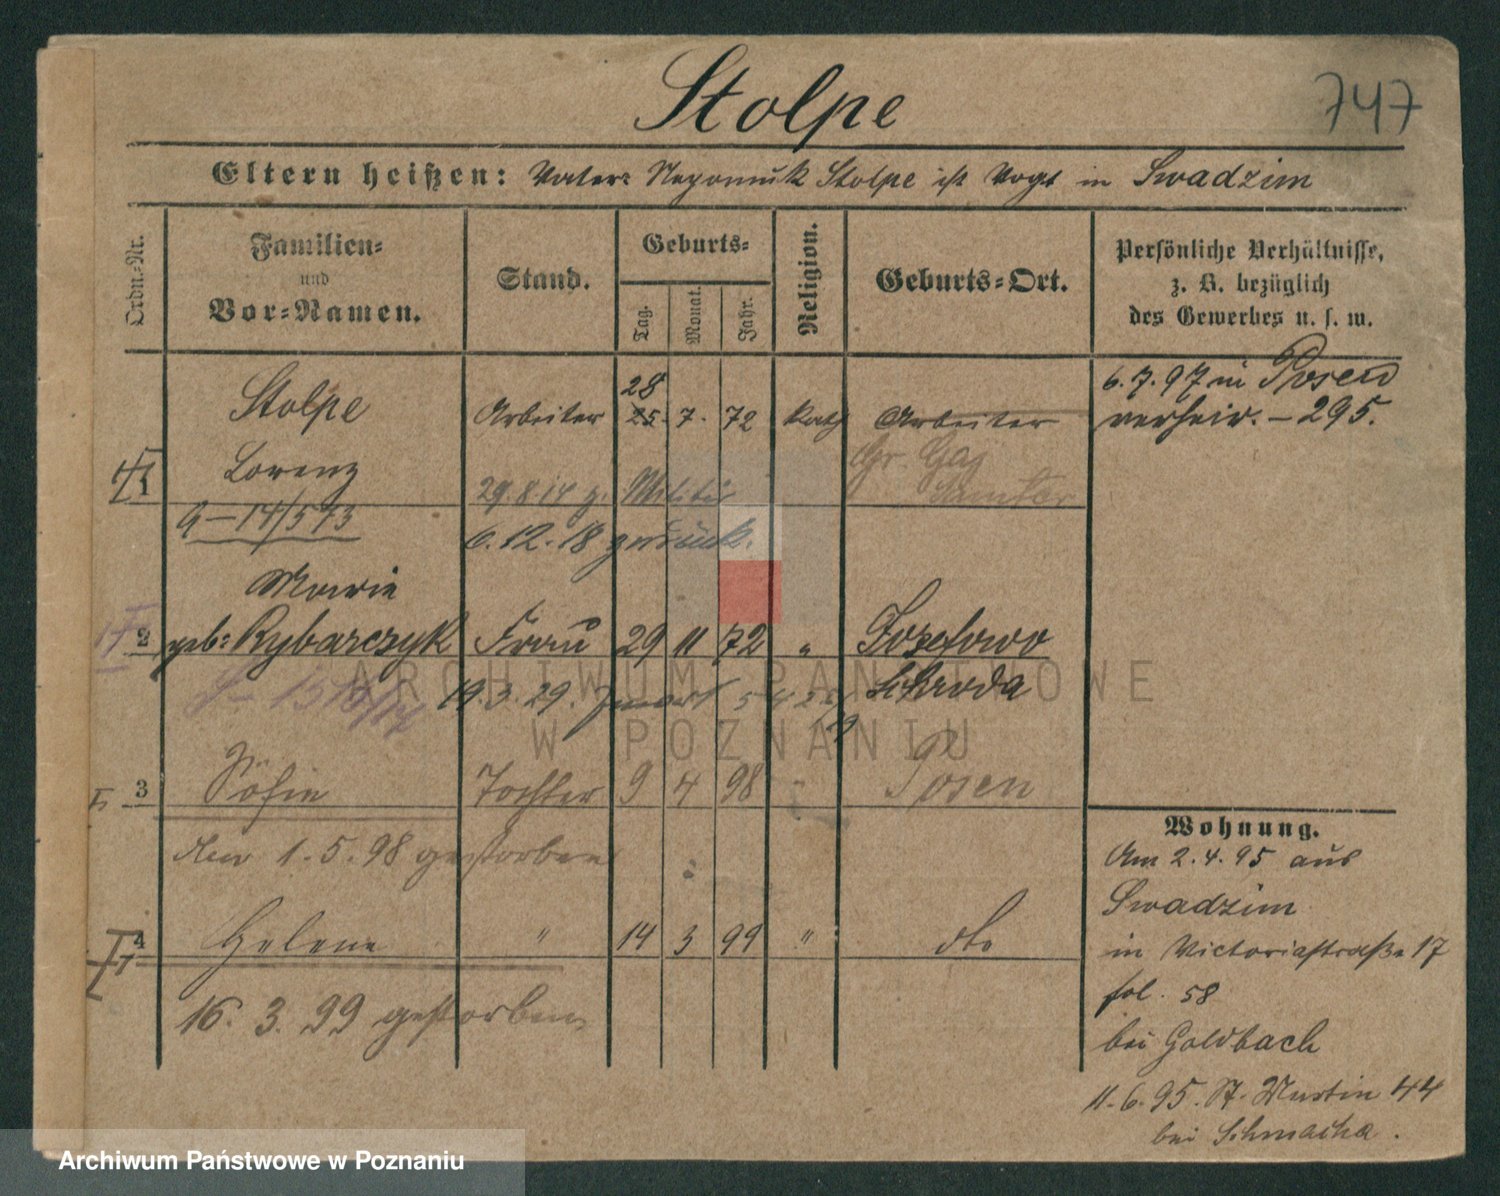 Stolpe
747
Eltern heißen: Vater Nepomuk Stolpe ist Vogt in Swadzim
Ordn.-Nr.
Familien-
und
Vor-Namen.
Stand.
Geburts-
Tag.
Monat.
Jahr.
Religion.
Geburts-Ort.
Persönliche Verhältnisse,
z. B. bezüglich
des Gewerbes u. s. w.
Stolpe
Lorenz
1
Arbeiter
28
25. 7. 72
kath
Arbeiter
Gr. Gay
Samter
6.7.97 in Posen
verheir. - 295.
29.8.14 z. Militär
6.12.18 zurück.
Marie
2 geb: Rybarczyk Frau 29 11 72 " Josefowo
Schroda
19.3.29.
3 Sofie Tochter 9 4 98 Posen
den 1.5.98 gestorben
4 Helene " 14 3 99 " dto
16. 3. 99 gestorben
Wohnung.
Am 2.4.95 aus
Swadzim
in Victoriastraße 17
fol. 58
bei Goldbach
11.6.95. St. Martin 44
bei
ARCHIWUM PAŃSTWOWE
W POZNANIU
Archiwum Państwowe w Poznaniu